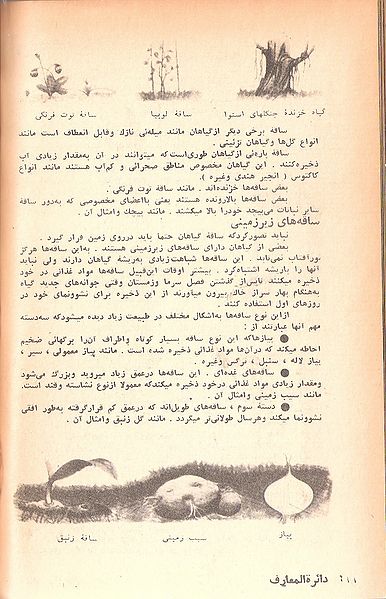 گیاه خزندهٔ جنگلهای استوا
ساقهٔ لوبیا
ساقهٔ توت فرنگی
ساقهٔ برخی دیگر ازگیاهان مانند میله‌ئی نازك وقابل انعطاف است مانند
انواع گل‌ها وگیاهان تزئینی .
ساقهٔ پاره‌ئی ازگیاهان طوری‌است‌که میتوانند در آن به‌مقدار زیادی آب
ذخیره‌کنند . این گیاهان مخصوص مناطق صحرائی و کم‌آب هستند مانند انواع
کاکتوس ( انجیر هندی وغیره ) .
بعضی ساقه‌ها خزنده‌اند . مانند ساقه توت فرنگی .
بعضی ساقه‌ها بالارونده هستند یعنی بااعضای مخصوصی که به‌دور ساقهٔ
سایر نباتات می‌پیچد خودرا بالا میکشند . مانند پیچك وامثال آن .
ساقه‌های زیرزمینی
نباید تصورکردکه ساقهٔ گیاهان حتما باید درروی زمین قرار گیرد .
بعضی از گیاهان دارای ساقه‌های زیرزمینی هستند . به‌این ساقه‌ها هرگز
نورآفتاب نمی‌تابد . این ساقه‌ها شباهت‌زیادی به‌ریشهٔ گیاهان دارند ولی نباید
آنها را باریشه اشتباه‌کرد . بیشتر اوقات این‌قبیل ساقه‌ها مواد غذائی در خود
ذخیره میکنند تاپس‌از گذشتن فصل سرما وزمستان وقتی جوانه‌های جدید گیاه
به‌هنگام بهار سراز خاك بیرون میآورند از این ذخیره برای نشوونمای خود در
روزهای اول استفاده کنند .
ازاین نوع ساقه‌ها به‌اشکال مختلف در طبیعت زیاد دیده میشودکه سه‌دسته
مهم آنها عبارتند از :
● پیازهاکه این نوع ساقه بسیار کوتاه واطراف آن‌را برگهائی ضخیم
احاطه میکند که درآن‌ها مواد غذائی ذخیره شده است . مانند پیاز معمولی ، سیر ،
پیاز لاله ، سنبل ، نرگس وغیره .
● ساقه‌های غده‌ای . این ساقه‌ها درعمق زیاد میروید وبزرگ می‌شود
ومقدار زیادی مواد غذائی درخود ذخیره میکندکه معمولا ازنوع نشاسته وقند است.
مانند سیب زمینی وامثال آن .
● دسته سوم ، ساقه‌های طویل‌اند که درعمق کم قرارگرفته به‌طور افقی
نشوونما میکند وهرسال طولانی‌تر میگردد . مانند گل زنبق وامثال آن .
پیاز
سیب زمینی
ساقهٔ زنبق
دائرةالمعارف